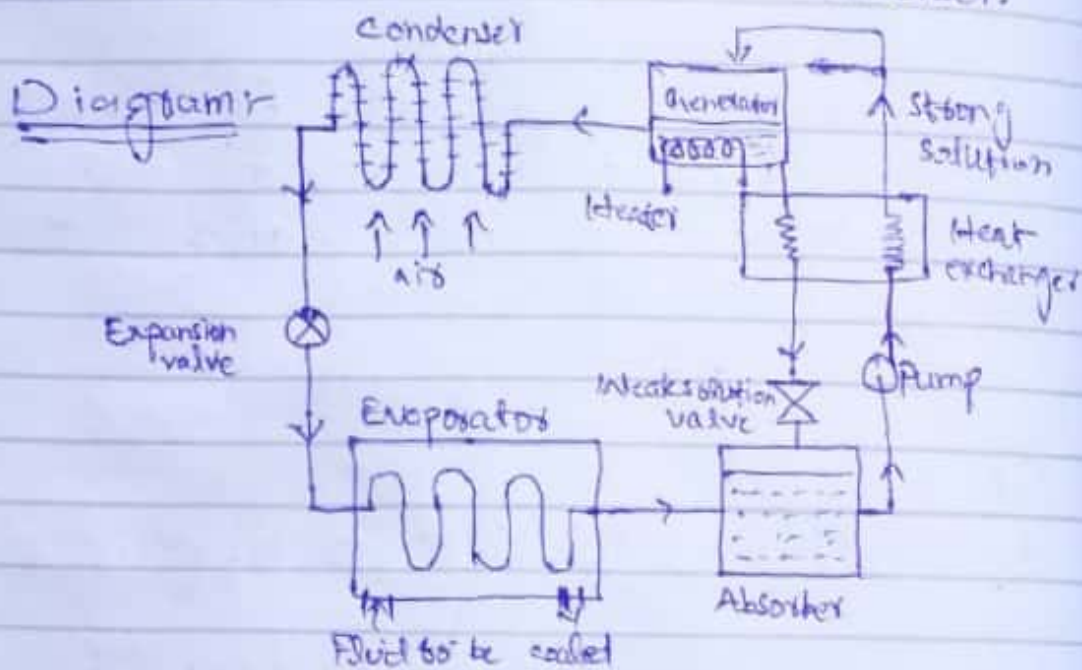 Condenser
Diagram:
Generator
Strong
solution
Heater
Heat
exchanger
air
Expansion
valve
Weak solution
valve
Pump
Evaporator
Absorber
Fluid to be cooled